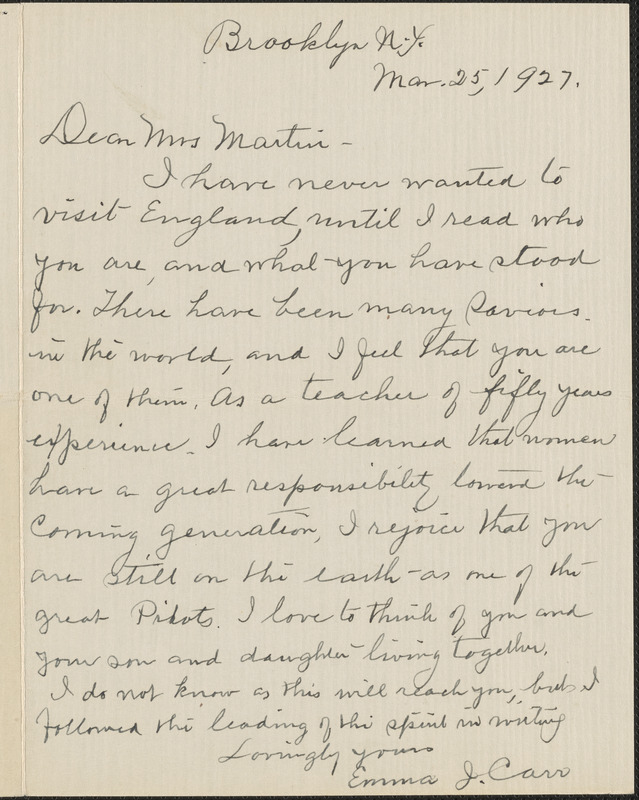 Brooklyn N.Y.
Mar. 25, 1927.
Dear Mrs Martin -
I have never wanted to
visit England, until I read who
you are, and what you have stood
for. There have been many Saviors
in the world, and I feel that you are
one of them. As a teacher of fifty years
experience - I have learned that women
have a great responsibility toward the
Coming generation, I rejoice that you
are still on the earth - as one of the
great Pilots. I love to think of you and
your son and daughter living together.
I do not know as this will reach you, but I
followed the leading of the spirit in writing
Lovingly yours
Emma J. Carr